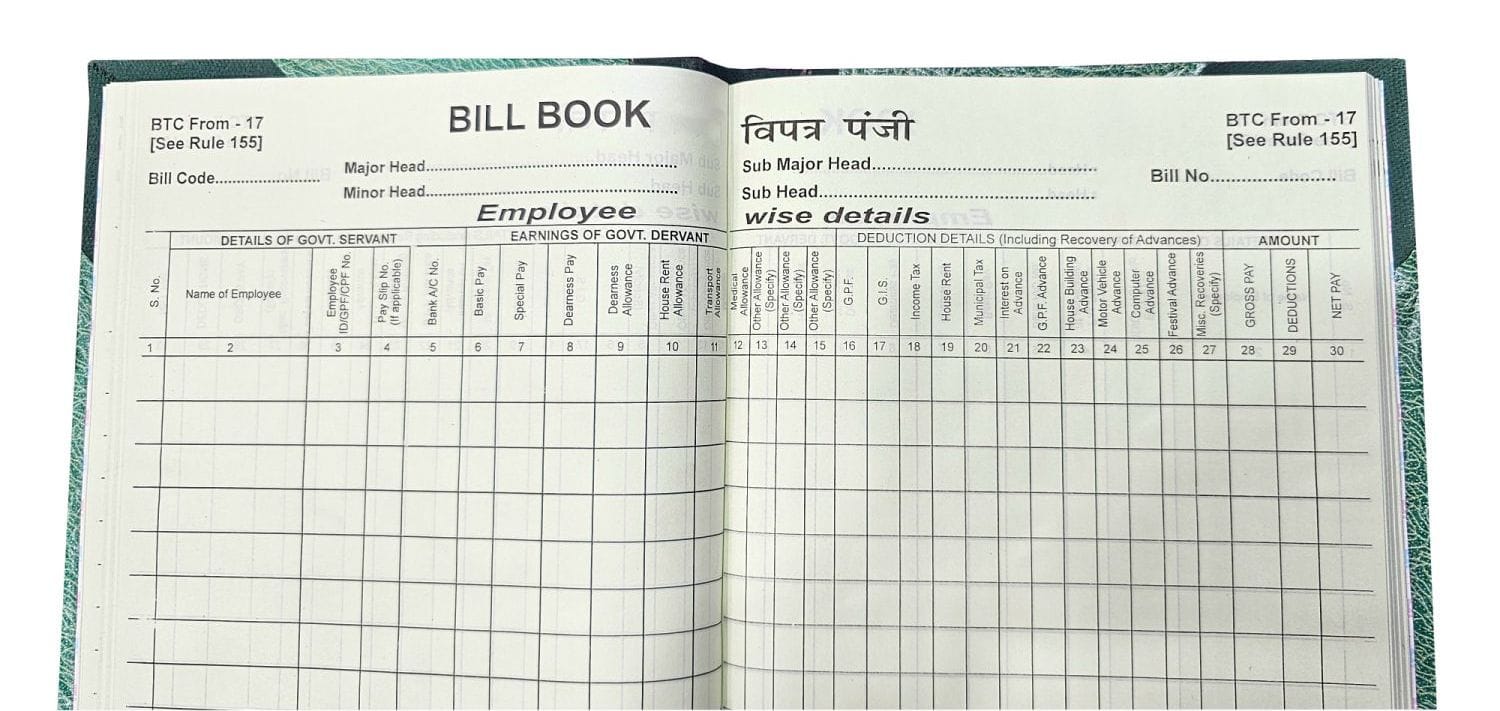 BTC From - 17
[See Rule 155]
BILL BOOK
Bill Code....................
Major Head................................................
Minor Head................................................
Employee
विपत्र पंजी
BTC From - 17
[See Rule 155]
Sub Major Head..........................................
Sub Head....................................................
Bill No........................
wise details
DETAILS OF GOVT. SERVANT
EARNINGS OF GOVT. DERVANT
DEDUCTION DETAILS (Including Recovery of Advances)
AMOUNT
S. No.
Name of Employee
Employee
ID/GPF/CPF No.
Pay Slip No.
(If applicable)
Bank A/C No.
Basic Pay
Special Pay
Dearness Pay
Dearness
Allowance
House Rent
Allowance
Transport
Allowance
Medical
Allowance
Other Allowance
(Specify)
Other Allowance
(Specify)
Other Allowance
(Specify)
G.P.F.
G.I.S.
Income Tax
House Rent
Municipal Tax
Interest on
Advance
G.P.F. Advance
House Building
Advance
Motor Vehicle
Advance
Computer
Advance
Festival Advance
Misc. Recoveries
(Specify)
GROSS PAY
DEDUCTIONS
NET PAY
1 2 3 4 5 6 7 8 9 10 11 12 13 14 15 16 17 18 19 20 21 22 23 24 25 26 27 28 29 30